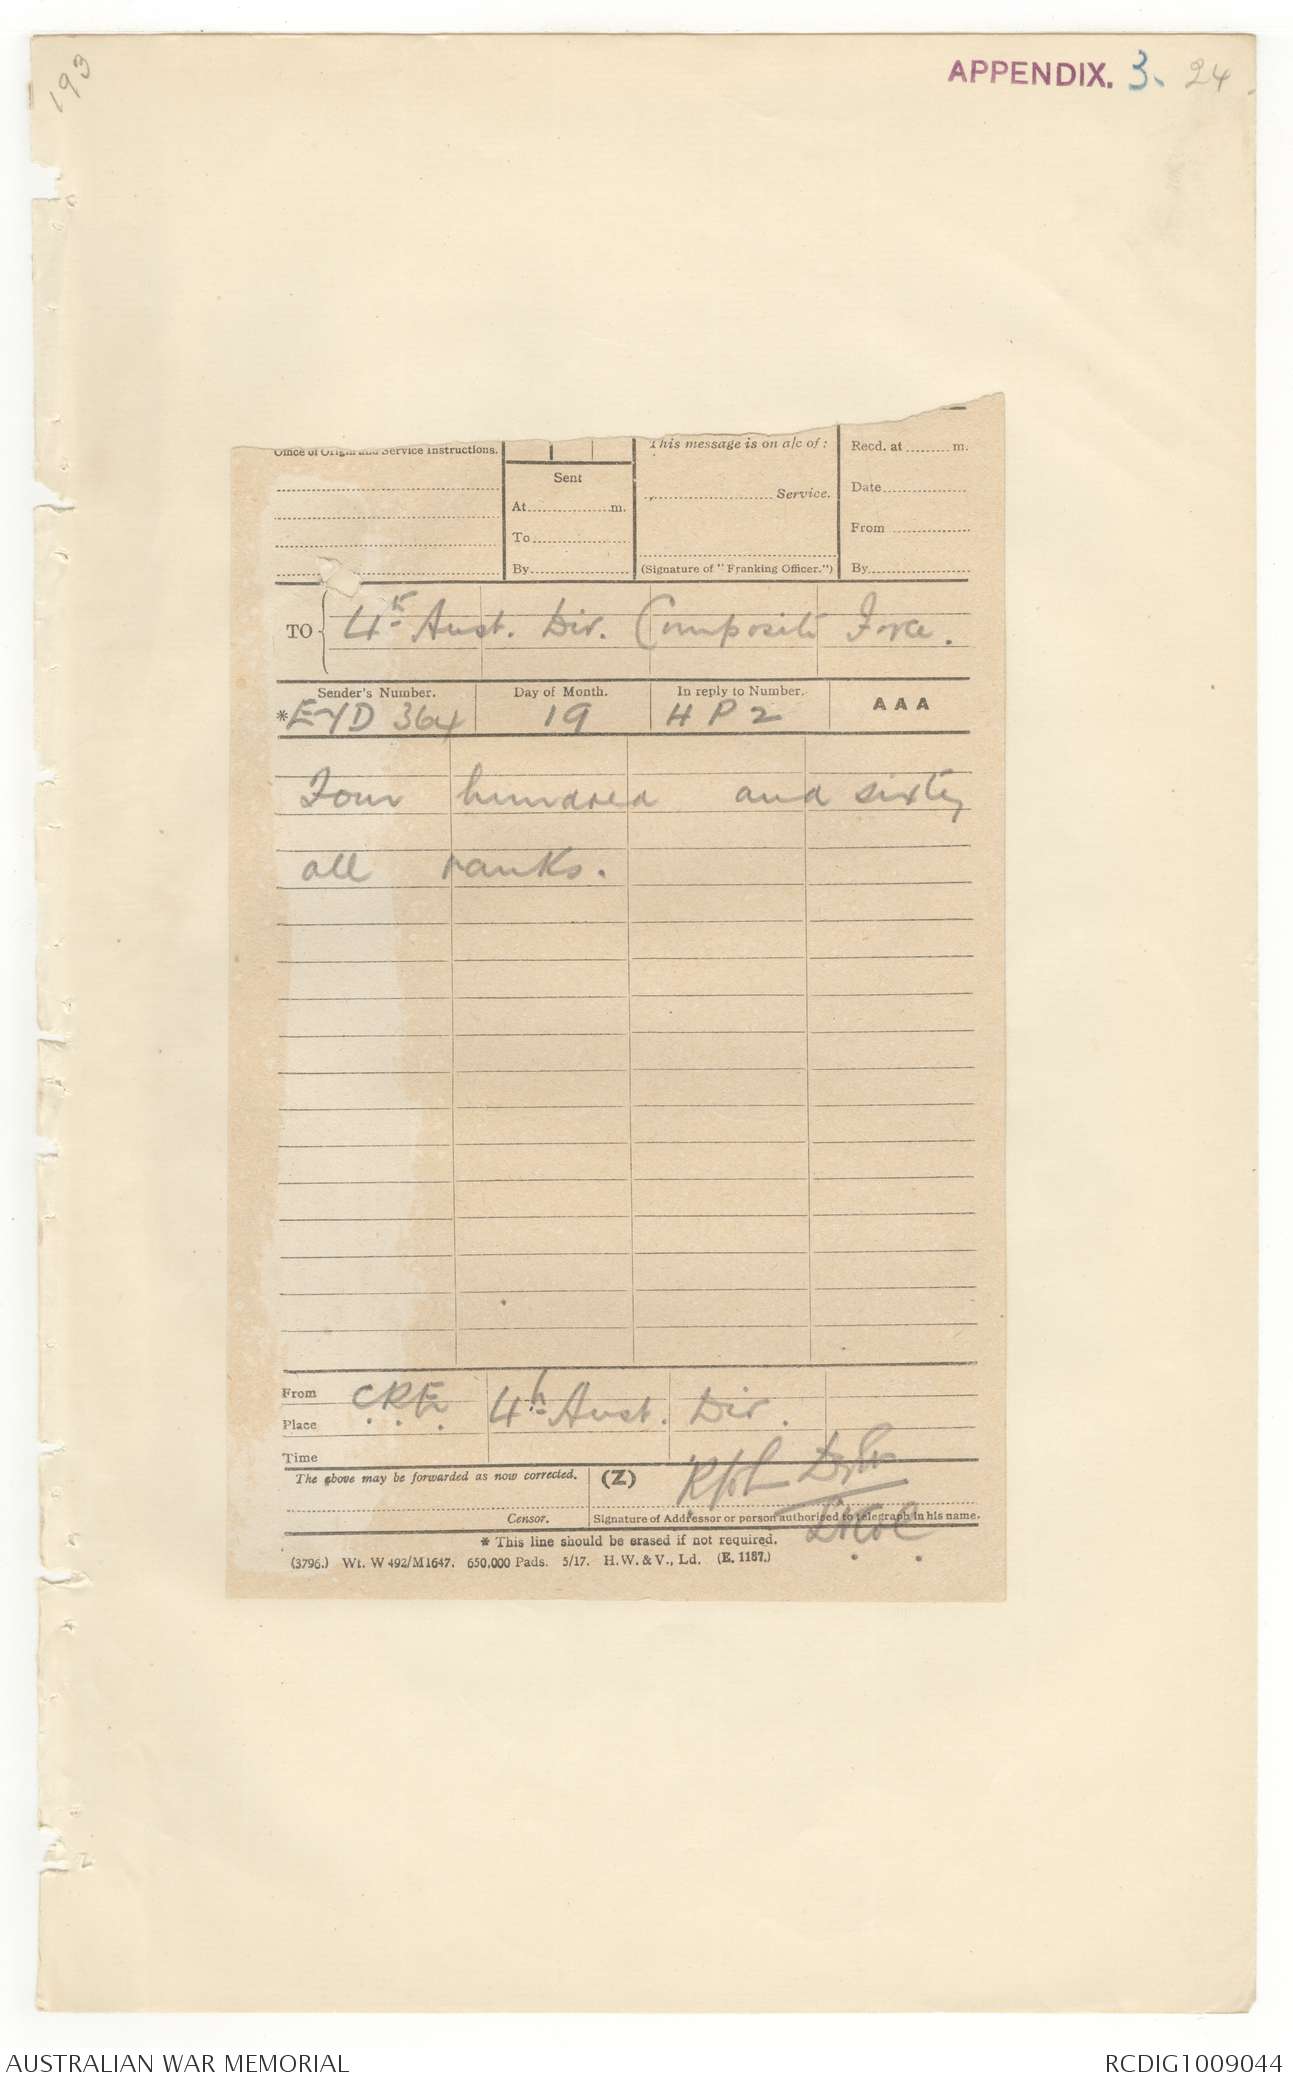 193
APPENDIX. 3. 24
Office of Origin and Service Instructions.
Sent
At m.
To
By
This message is on a/c of :
Service.
(Signature of "Franking Officer.")
Recd. at m.
Date
From
By
TO 4th Aust. Div. Composite Force.
Sender's Number. Day of Month. In reply to Number. AAA
* EYD 364 19 HP2
Four hundred and sixty
all ranks.
From C.R.E. 4th Aust. Div.
Place
Time
The above may be forwarded as now corrected. (Z)
Censor. Signature of Addressor or person authorised to telegraph in his name.
Lt Col
* This line should be erased if not required.
(3796.) Wt. W 492/M1647. 650,000 Pads. 5/17. H. W. & V., Ld. (E. 1187.)
AUSTRALIAN WAR MEMORIAL RCDIG1009044